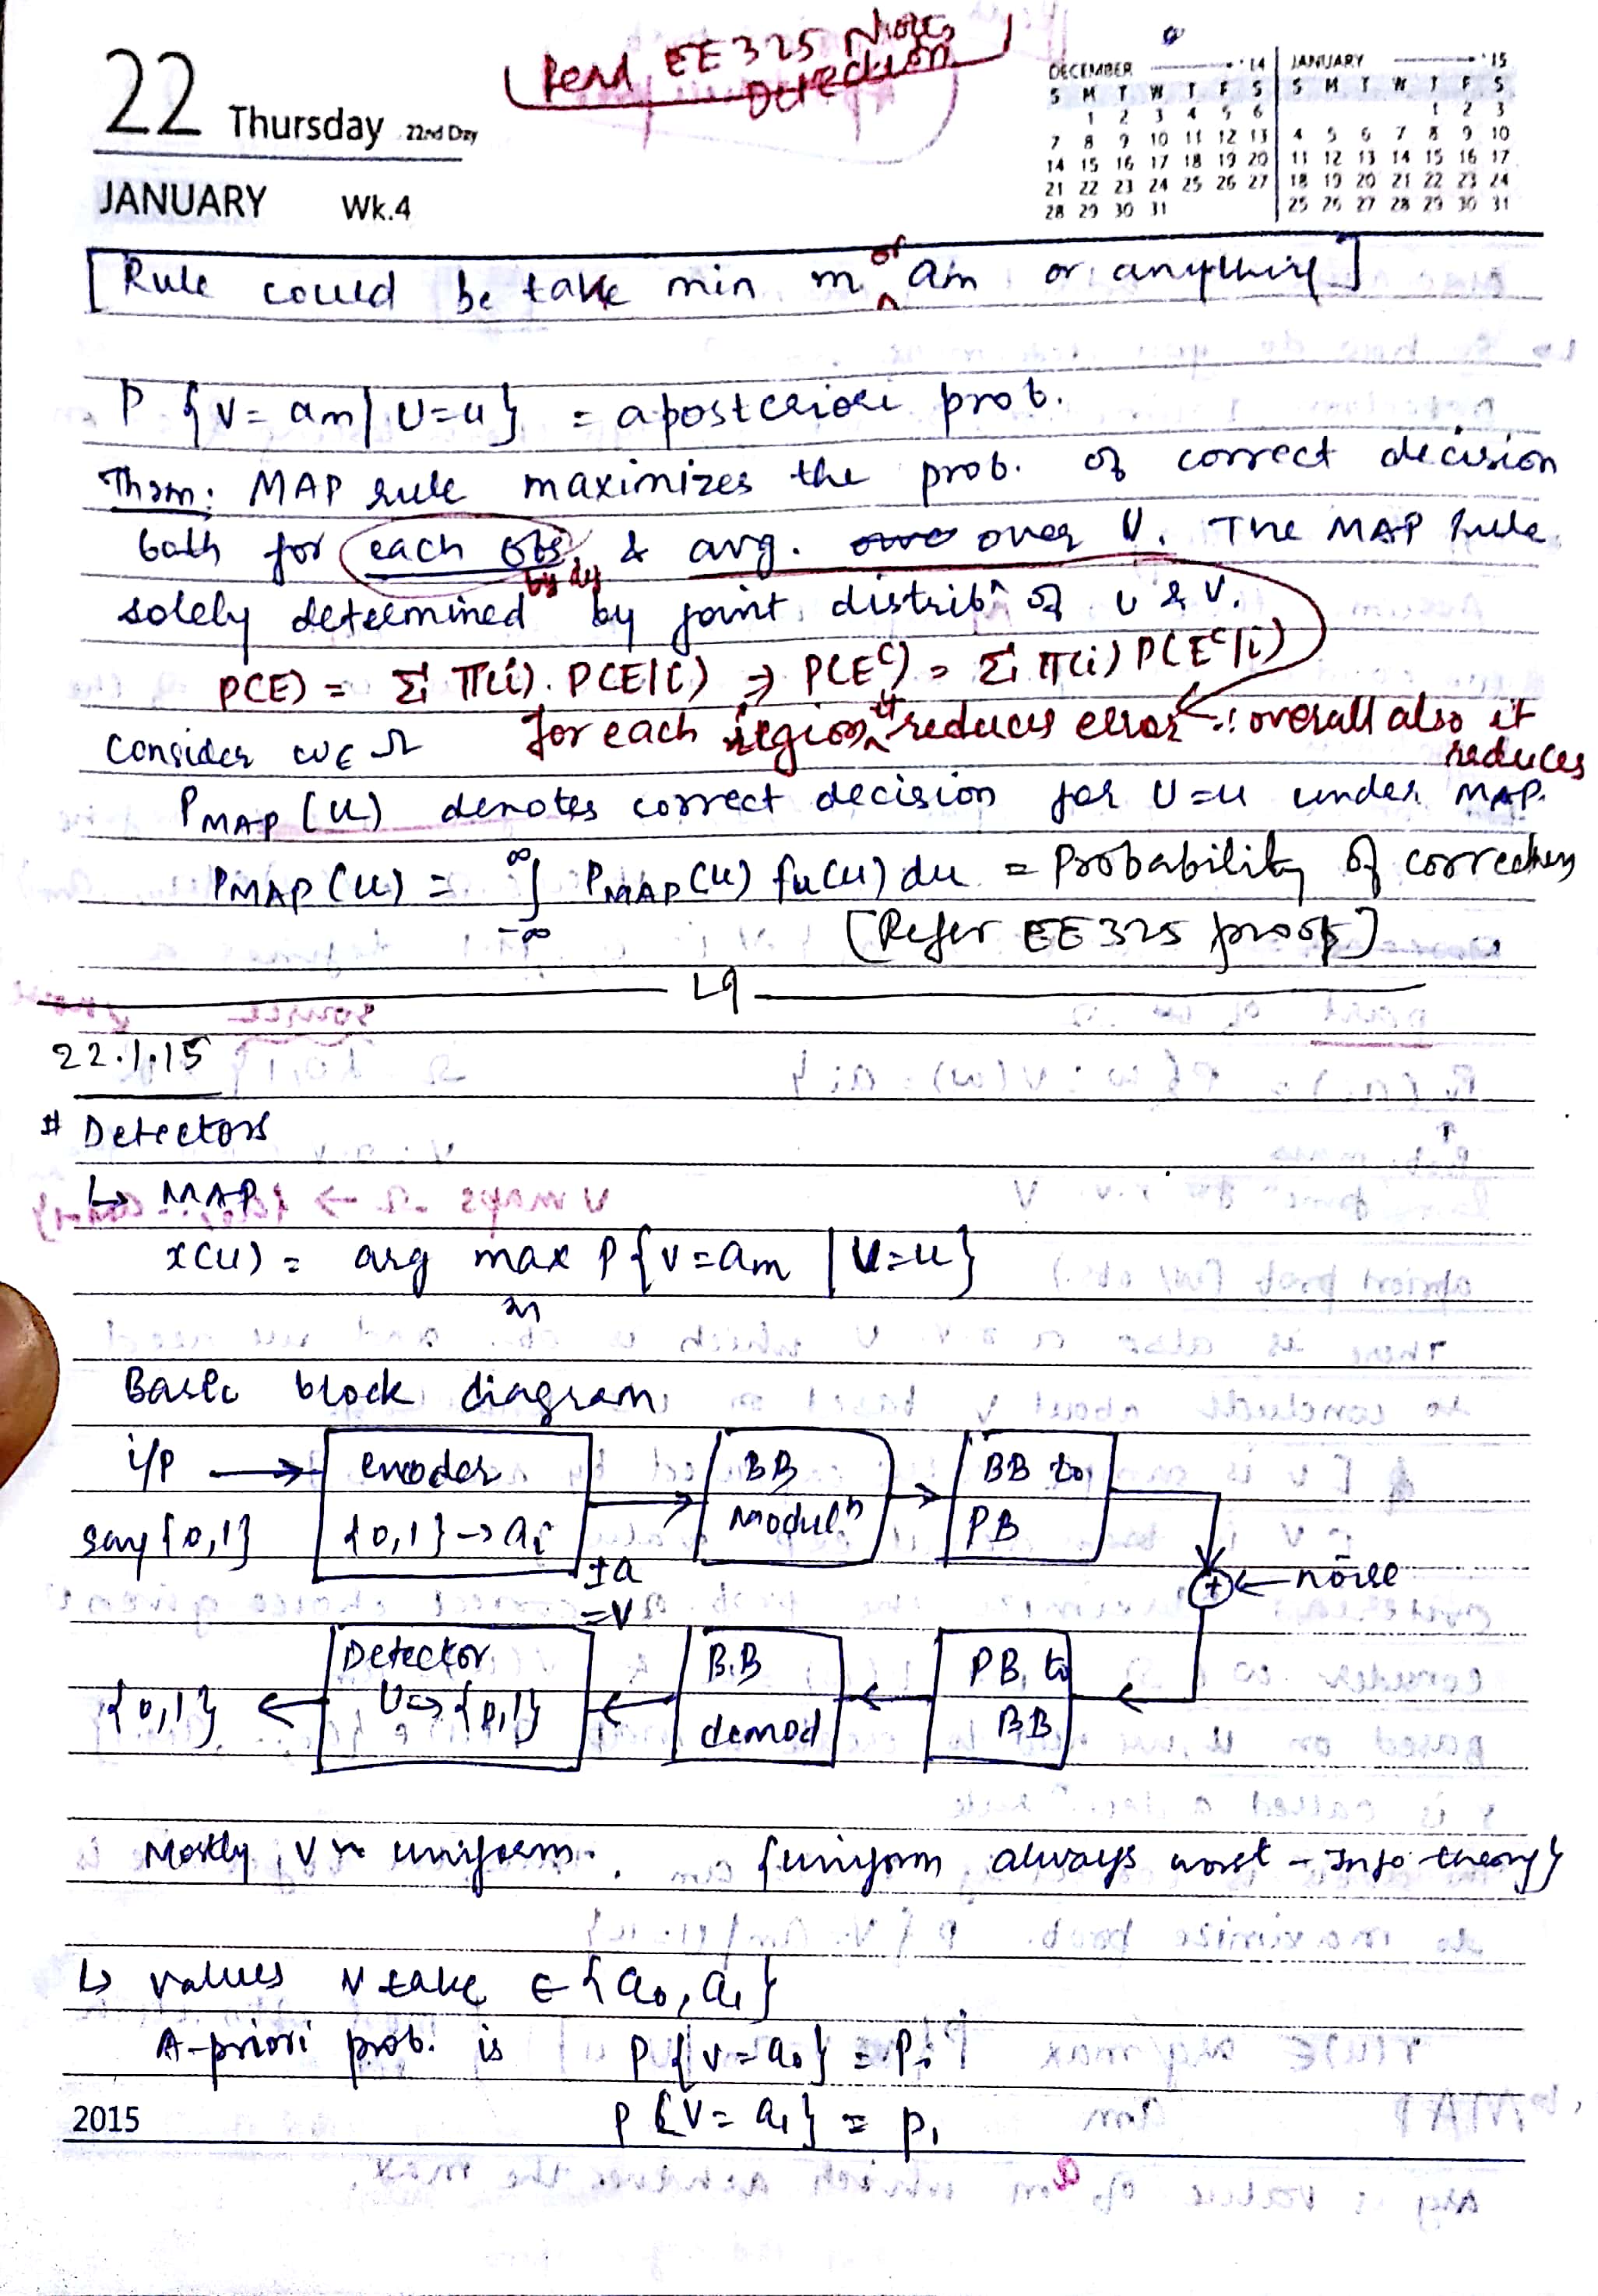 Read EE325 Notes
Detection
22 Thursday 22nd Day
JANUARY Wk.4
DECEMBER '14
S M T W T F S
1 2 3 4 5 6
7 8 9 10 11 12 13
14 15 16 17 18 19 20
21 22 23 24 25 26 27
28 29 30 31
JANUARY '15
S M T W T F S
1 2 3
4 5 6 7 8 9 10
11 12 13 14 15 16 17
18 19 20 21 22 23 24
25 26 27 28 29 30 31
[Rule could be take min m of am or anything]
P {V = am | U=u} = aposteriori prob.
Thm: MAP rule maximizes the prob. of correct decision
both for each obs. & avg. over U. The MAP rule
solely determined by joint distribⁿ of U & V.
P(E) = Σ π(i). P(E|i) ⇒ P(Eᶜ) = Σ π(i) P(Eᶜ|i)
for each region it reduces error ∴ overall also it reduces
Consider ω∈Ω
PMAP (u) denotes correct decision for U=u under MAP.
PMAP (u) = ∫_{-∞}^{∞} PMAP(u) fu(u) du = Probability of correctness
[Refer EE325 proof]
L9
22.1.15
# Detectors
↳ MAP
r(u) = arg max P{V=am | U=u}
m
Basic block diagram
i/p → encoder → BB Modulⁿ → BB to PB
say {0,1} {0,1} → ai
±a
=V
⊕ ← noise
{0,1} ← Detector U→{0,1} ← B.B demod ← PB to BB
Mostly V ~ uniform. {uniform always worst - Info theory}
↳ values V take ∈ {a0, a1}
A-priori prob. is P{V=a0} = P0
P{V=a1} = p1
2015